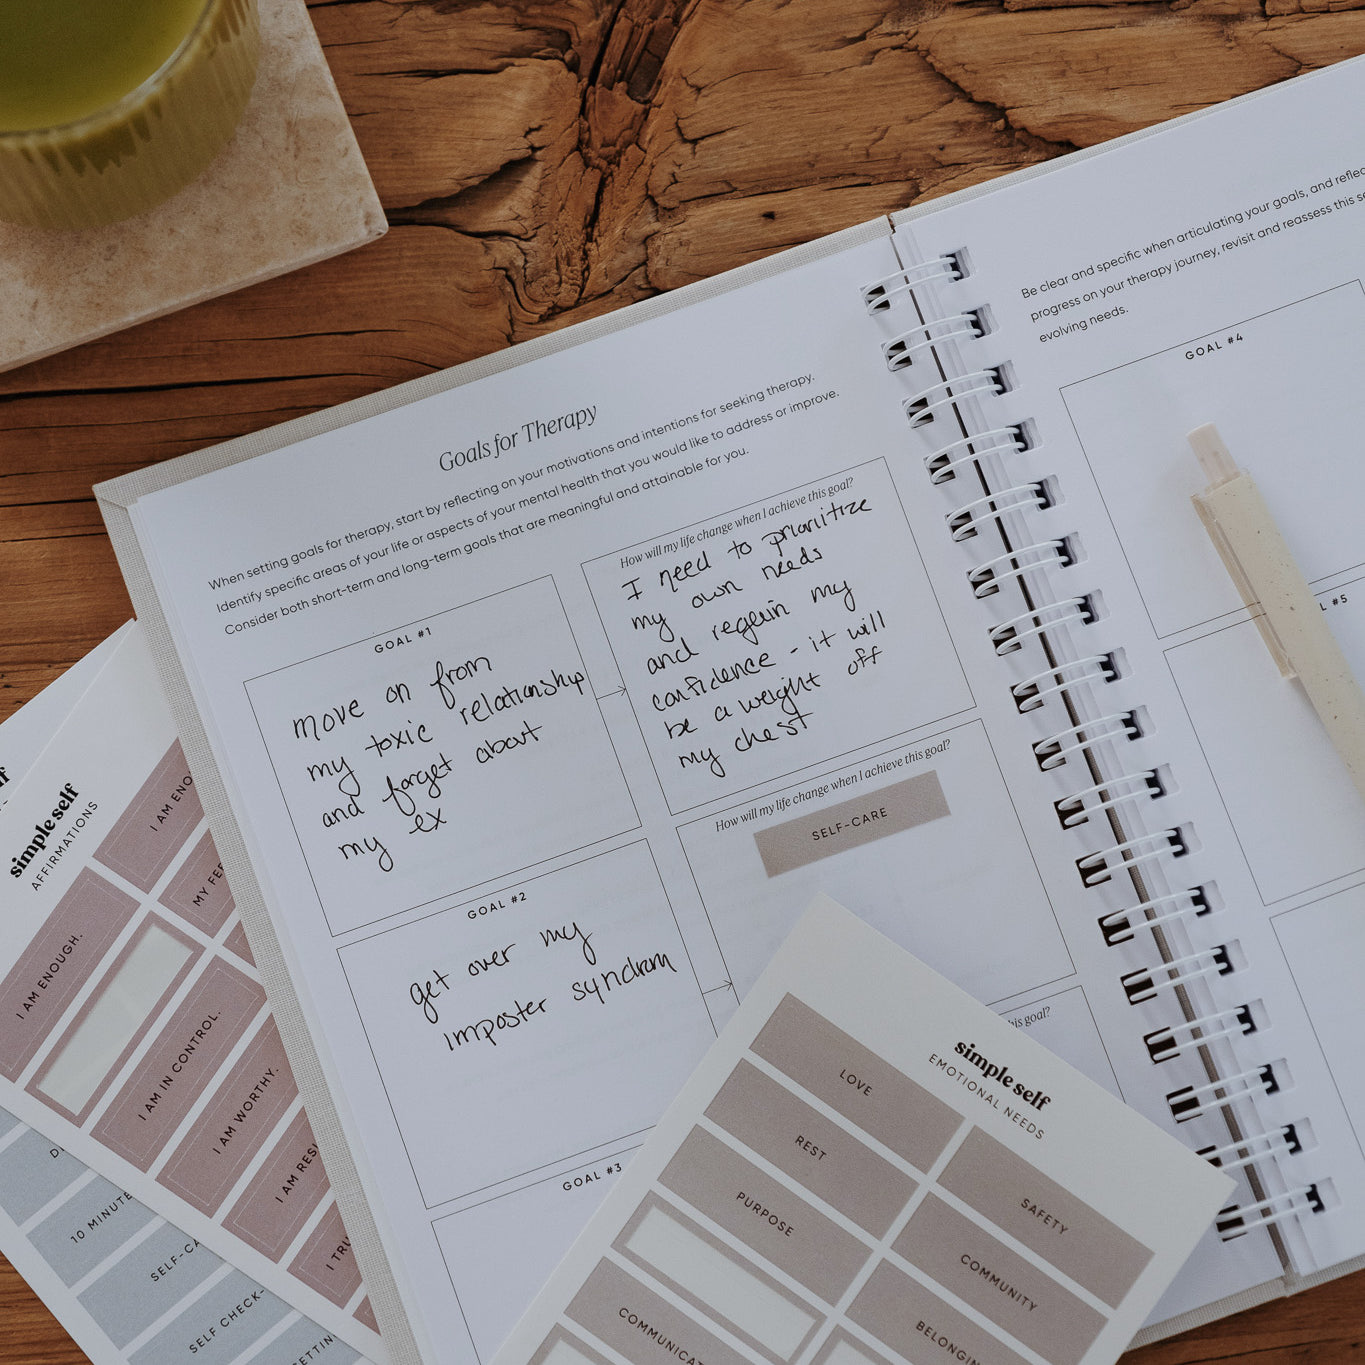 Goals for Therapy
When setting goals for therapy, start by reflecting on your motivations and intentions for seeking therapy.
Identify specific areas of your life or aspects of your mental health that you would like to address or improve.
Consider both short-term and long-term goals that are meaningful and attainable for you.
GOAL #1
move on from
my toxic relationship
and forget about
my ex
How will my life change when I achieve this goal?
I need to prioritize
my own needs
and regain my
confidence - it will
be a weight off
my chest
GOAL #2
get over my
imposter syndrom
How will my life change when I achieve this goal?
SELF-CARE
GOAL #3
this goal?
Be clear and specific when articulating your goals, and
progress on your therapy journey, revisit and reassess this
evolving needs.
GOAL #4
#5
simple self
AFFIRMATIONS
I AM
MY
I AM ENOUGH.
I AM IN CONTROL.
I AM WORTHY.
I AM
I
10 MINUTE
SELF-
SELF CHECK-
simple self
EMOTIONAL NEEDS
LOVE
REST
PURPOSE
SAFETY
COMMUNITY